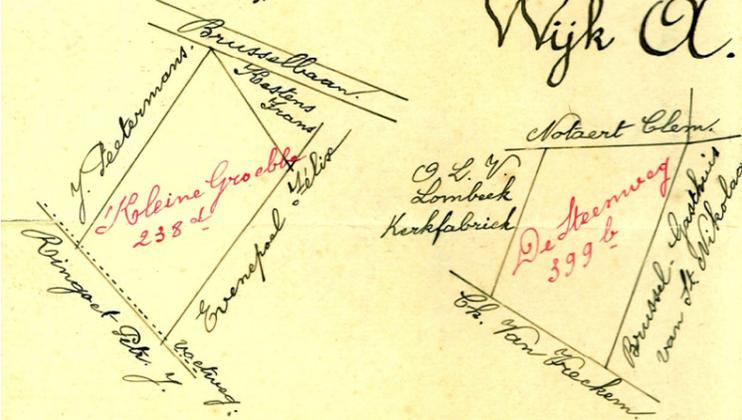 Wijk A.
Brusselbaan.
Kestens
Frans
J. Peetermans.
Kleine Groebbe
238 d
Evenepoel Félix
Ringoet Ptr. J.
voetweg.
Notaert Clem.
O. L. V.
Lombeek
Kerkfabriek
De Steenweg
399 b
Brussel. Gasthuis
van St. Nikolaas
Ch. Van Vreckem.